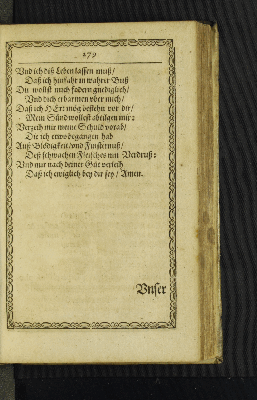 279
Vnd ich diß Leben lassen muß/
Daß ich hinfahr in wahrer Buß
Du wollst mich fodern gnediglich/
Vnd dich erbarmen vber mich/
Daß ich HErr mög bestehn vor dir/
Mein Sünd wollest abtilgen mir:
Verzeih mir meine Schuld vorab/
Die ich etwo begangen hab
Auß Blödigkeit/ vnd Finsternuß/
Deß schwachen Fleisches mit Verdruß:
Vnd mir nach deiner Güt verleih
Daß ich ewiglich bey dir sey/ Amen.
Vnser